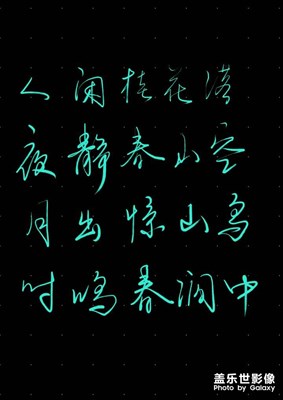 人闲桂花落
夜静春山空
月出惊山鸟
时鸣春涧中
盖乐世影像
Photo by Galaxy